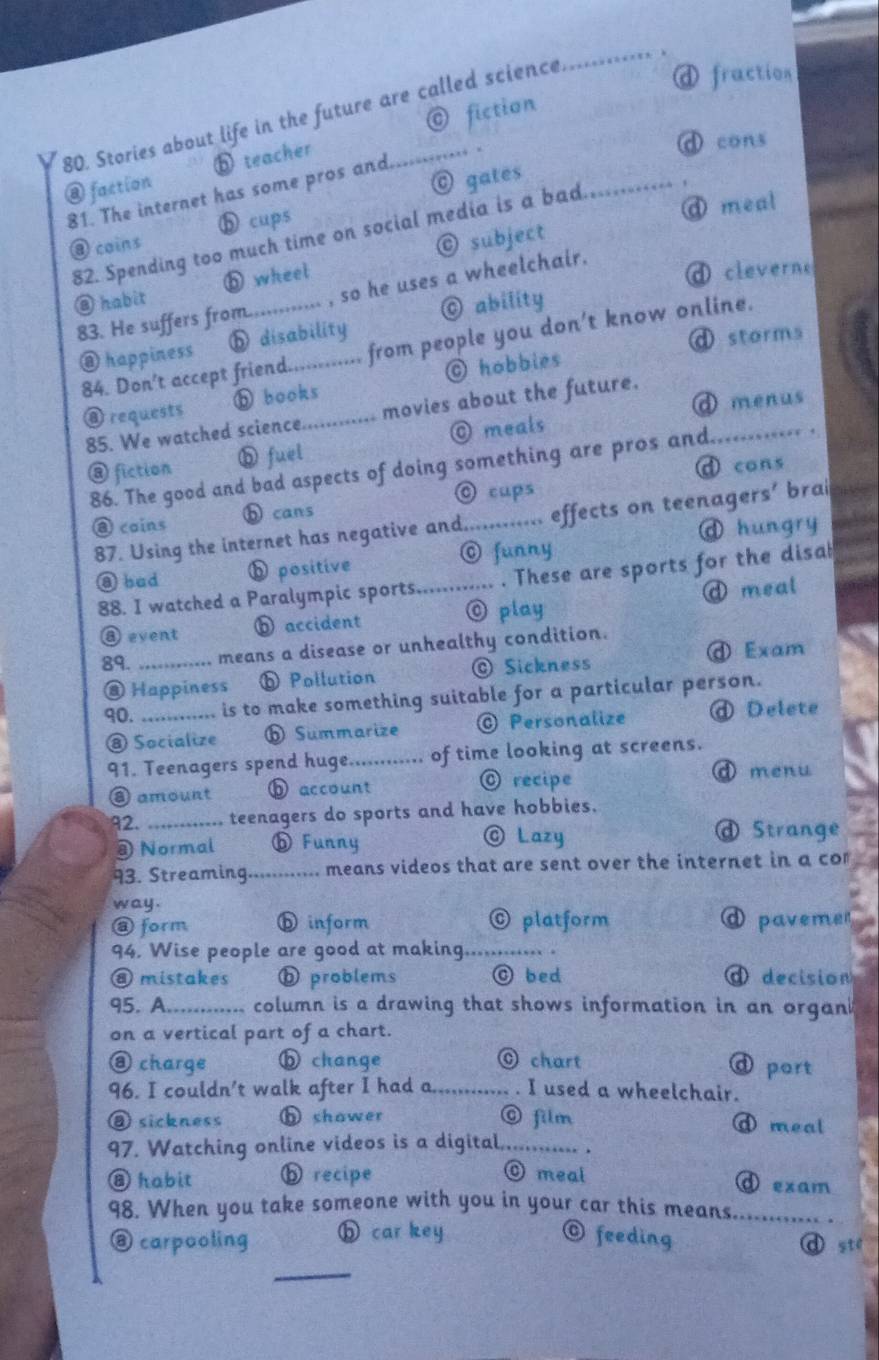 80. Stories about life in the future are called science............. .
ⓐ faction ⓑ teacher ⓒ fiction ⓓ fraction
81. The internet has some pros and............. .
ⓐ coins ⓑ cups ⓒ gates ⓓ cons
82. Spending too much time on social media is a bad............. .
ⓐ habit ⓑ wheel ⓒ subject ⓓ meal
83. He suffers from............ , so he uses a wheelchair.
ⓐ happiness ⓑ disability ⓒ ability ⓓ cleverne
84. Don't accept friend............ from people you don't know online.
ⓐ requests ⓑ books ⓒ hobbies ⓓ storms
85. We watched science............ movies about the future.
ⓐ fiction ⓑ fuel ⓒ meals ⓓ menus
86. The good and bad aspects of doing something are pros and............. .
ⓐ coins ⓑ cans ⓒ cups ⓓ cons
87. Using the internet has negative and............ effects on teenagers' brai
ⓐ bad ⓑ positive ⓒ funny ⓓ hungry
88. I watched a Paralympic sports............ . These are sports for the disab
ⓐ event ⓑ accident ⓒ play ⓓ meal
89. ............ means a disease or unhealthy condition.
ⓐ Happiness ⓑ Pollution ⓒ Sickness ⓓ Exam
90. ............ is to make something suitable for a particular person.
ⓐ Socialize ⓑ Summarize ⓒ Personalize ⓓ Delete
91. Teenagers spend huge............ of time looking at screens.
ⓐ amount ⓑ account ⓒ recipe ⓓ menu
92. ............ teenagers do sports and have hobbies.
ⓐ Normal ⓑ Funny ⓒ Lazy ⓓ Strange
93. Streaming............ means videos that are sent over the internet in a con
way.
ⓐ form ⓑ inform ⓒ platform ⓓ pavemen
94. Wise people are good at making............ .
ⓐ mistakes ⓑ problems ⓒ bed ⓓ decision
95. A............ column is a drawing that shows information in an organi
on a vertical part of a chart.
ⓐ charge ⓑ change ⓒ chart ⓓ port
96. I couldn't walk after I had a............ . I used a wheelchair.
ⓐ sickness ⓑ shower ⓒ film ⓓ meal
97. Watching online videos is a digital............ .
ⓐ habit ⓑ recipe ⓒ meal ⓓ exam
98. When you take someone with you in your car this means............. .
ⓐ carpooling ⓑ car key ⓒ feeding ⓓ